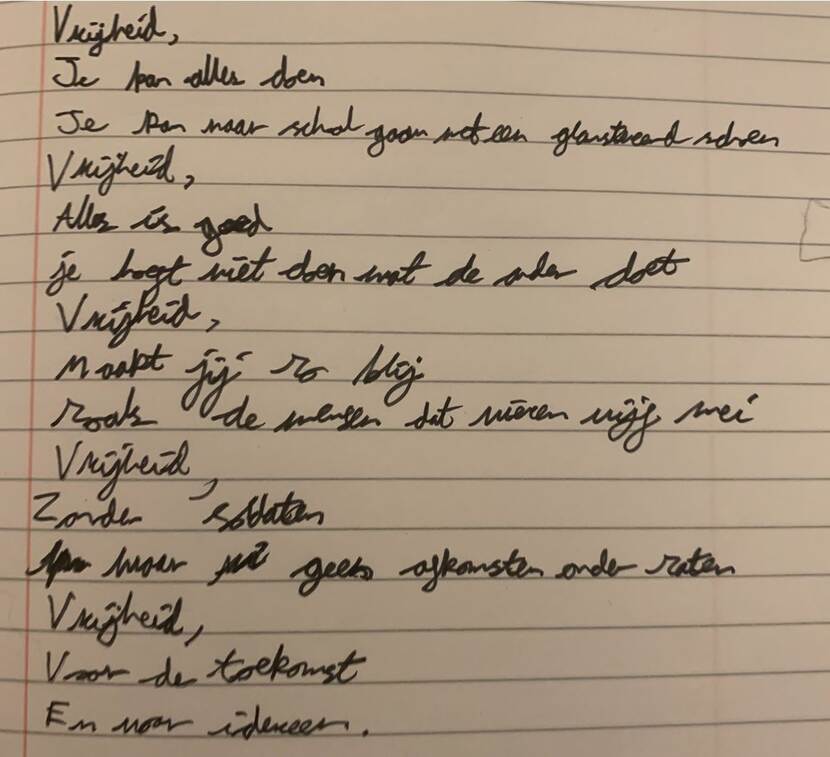 Vrijheid,
Je kan alles doen
Je kan naar school gaan met een schoen
Vrijheid,
Alles is goed
je hoeft niet doen wat de ander doet
Vrijheid,
Maakt jij zo blij
zoals de mensen dat vieren vijf mei
Vrijheid,
Zonder soldaten
waar geen afkomsten onder zaten
Vrijheid,
Voor de toekomst
En voor idereen.